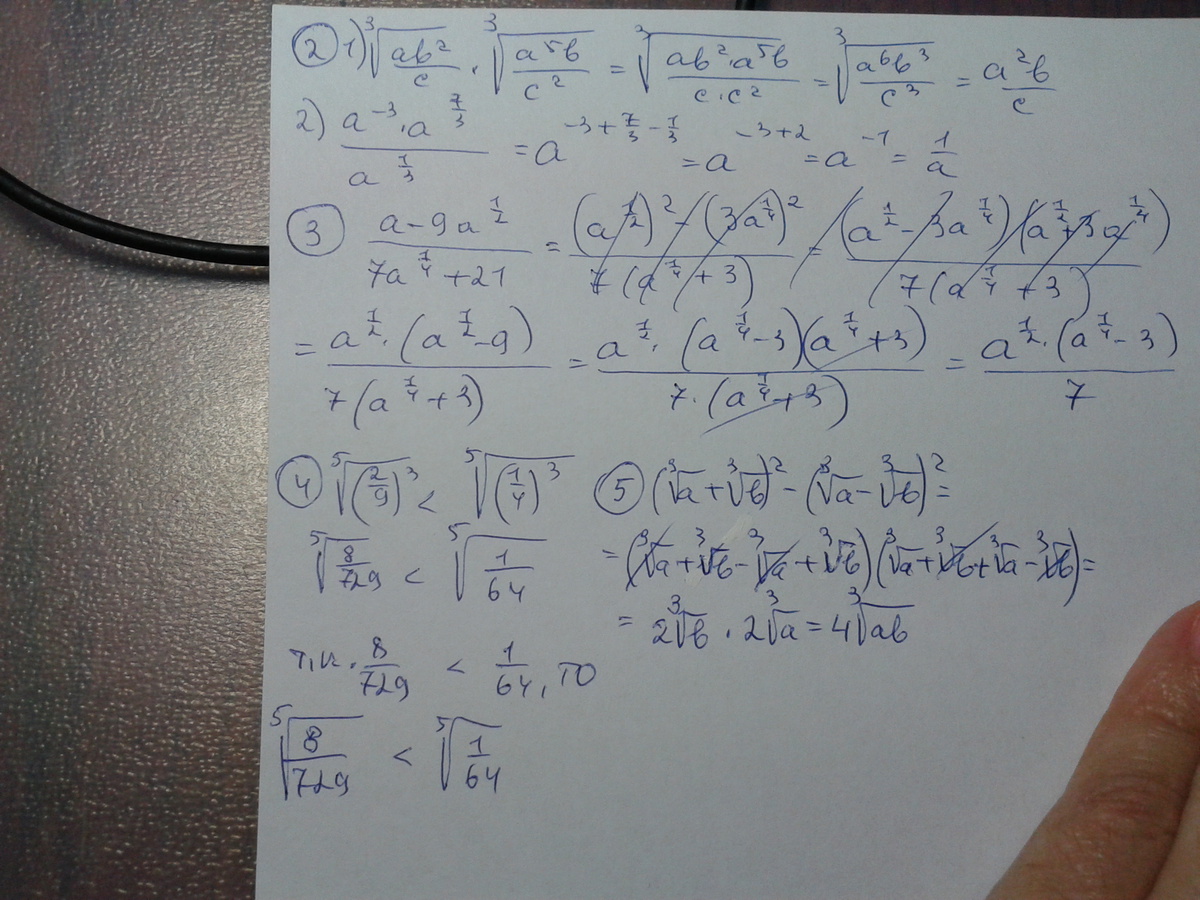 ② 1) ∛(ab²/c) · ∛(a⁵b/c²) = ∛(ab²·a⁵b/(c·c²)) = ∛(a⁶b³/c³) = a²b/c
2) (a^(-3)·a^(7/3))/a^(1/3) = a^(-3+7/3-1/3) = a^(-3+2) = a^(-1) = 1/a
③ (a-9a^(1/2))/(7a^(1/4)+21) = ((a^(1/2))²-(3a^(1/4))²)/(7(a^(1/4)+3)) = ((a^(1/2)-3a^(1/4))(a^(1/2)+3a^(1/4)))/(7(a^(1/4)+3))
= (a^(1/2)·(a^(1/2)-9))/(7(a^(1/4)+3)) = (a^(1/2)·(a^(1/4)-3)(a^(1/4)+3))/(7·(a^(1/4)+3)) = (a^(1/2)·(a^(1/4)-3))/7
④ ⁵√((2/9)³) < ⁵√((1/4)³)
⁵√(8/729) < ⁵√(1/64)
т.к. 8/729 < 1/64, то
⁵√(8/729) < ⁵√(1/64)
⑤ (∛a+∛b)²-(∛a-∛b)²=
=(∛a+∛b-∛a+∛b)(∛a+∛b+∛a-∛b)=
= 2∛b · 2∛a = 4∛ab